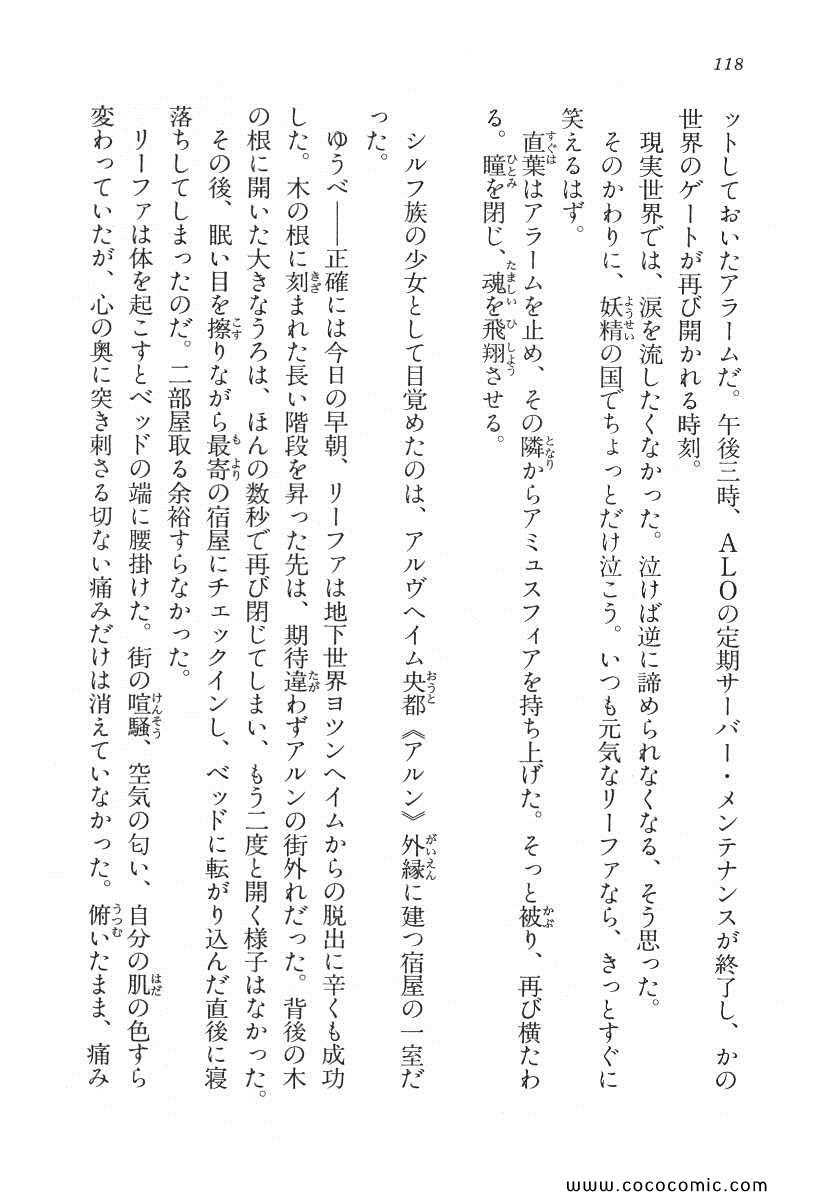 118
ットしておいたアラームだ。午後三時、ＡＬＯの定期サーバー・メンテナンスが終了し、かの
世界のゲートが再び開かれる時刻。
現実世界では、涙を流したくなかった。泣けば逆に諦められなくなる、そう思った。
そのかわりに、妖精の国でちょっとだけ泣こう。いつも元気なリーファなら、きっとすぐに
笑えるはず。
直葉はアラームを止め、その隣からアミュスフィアを持ち上げた。そっと被り、再び横たわ
る。瞳を閉じ、魂を飛翔させる。
シルフ族の少女として目覚めたのは、アルヴヘイム央都《アルン》外縁に建つ宿屋の一室だ
った。
ゆうべ――正確には今日の早朝、リーファは地下世界ヨツンヘイムからの脱出に辛くも成功
した。木の根に刻まれた長い階段を昇った先は、期待違わずアルンの街外れだった。背後の木
の根に開いた大きなうろは、ほんの数秒で再び閉じてしまい、もう二度と開く様子はなかった。
その後、眠い目を擦りながら最寄の宿屋にチェックインし、ベッドに転がり込んだ直後に寝
落ちしてしまったのだ。二部屋取る余裕すらなかった。
リーファは体を起こすとベッドの端に腰掛けた。街の喧騒、空気の匂い、自分の肌の色すら
変わっていたが、心の奥に突き刺さる切ない痛みだけは消えていなかった。俯いたまま、痛み
www.cococomic.com